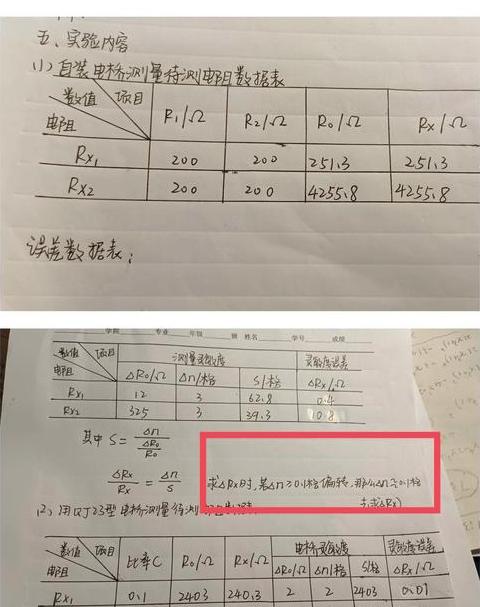 五、实验内容
(1) 自装电桥测量待测电阻数据表
数值 项目 电阻 R1/Ω R2/Ω R0/Ω Rx/Ω
Rx1 200 200 251.3 251.3
Rx2 200 200 4255.8 4255.8
误差数据表:
专业 年级 班 姓名 学号 成绩
数值 项目 测量灵敏度 灵敏度误差
电阻 ΔR0/Ω Δn/格 S/格 ΔRx/Ω
Rx1 12 3 62.8 0.4
Rx2 325 3 39.3 10.8
其中 S= Δn / (ΔR0/R0)
ΔRx/Rx = Δn/S
求ΔRx时,若Δn≥0.1格偏转,
去求ΔRx)
(2) 用QJ23型电桥测量待测
数值 项目 比率C R0/Ω Rx/Ω 电桥灵敏度 灵敏度误差
电阻 ΔR0/Ω Δn/格 S/格 ΔRx/Ω
Rx1 0.1 2403 240.3 2 2 2403 0.01